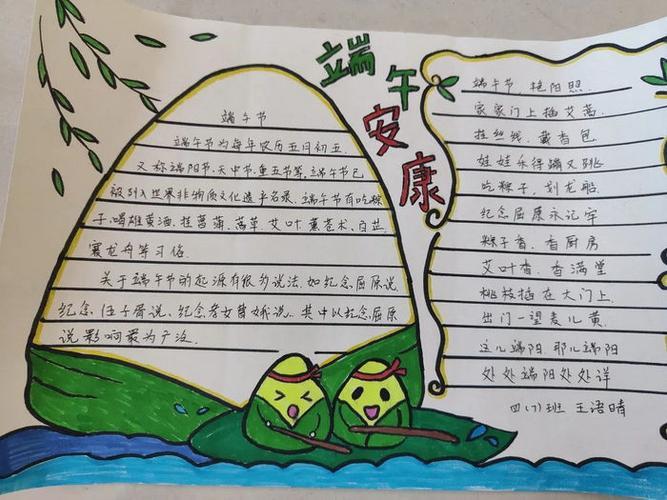 端午安康
端午节
端午节为每年农历五月初五
又称端阳节、天中节、重五节等，端午节已
被列入世界非物质文化遗产名录、端午节有吃粽
子、喝雄黄酒、挂菖蒲、蒿草、艾叶、薰苍术、白芷
赛龙舟等习俗
关于端午节的起源有很多说法，如纪念屈原说
纪念伍子胥说、纪念孝女曹娥说、其中以纪念屈原
说影响最为广泛
端午节 艳阳照
家家门上插艾蒿
挂丝线、戴香包
娃娃乐得蹦又跳
吃粽子，划龙船
纪念屈原永记牢
粽子香、香厨房
艾叶香、香满堂
桃枝插在大门上
出门一望麦儿黄
这儿端阳 那儿端阳
处处端阳处处详
四(7)班 王语晴